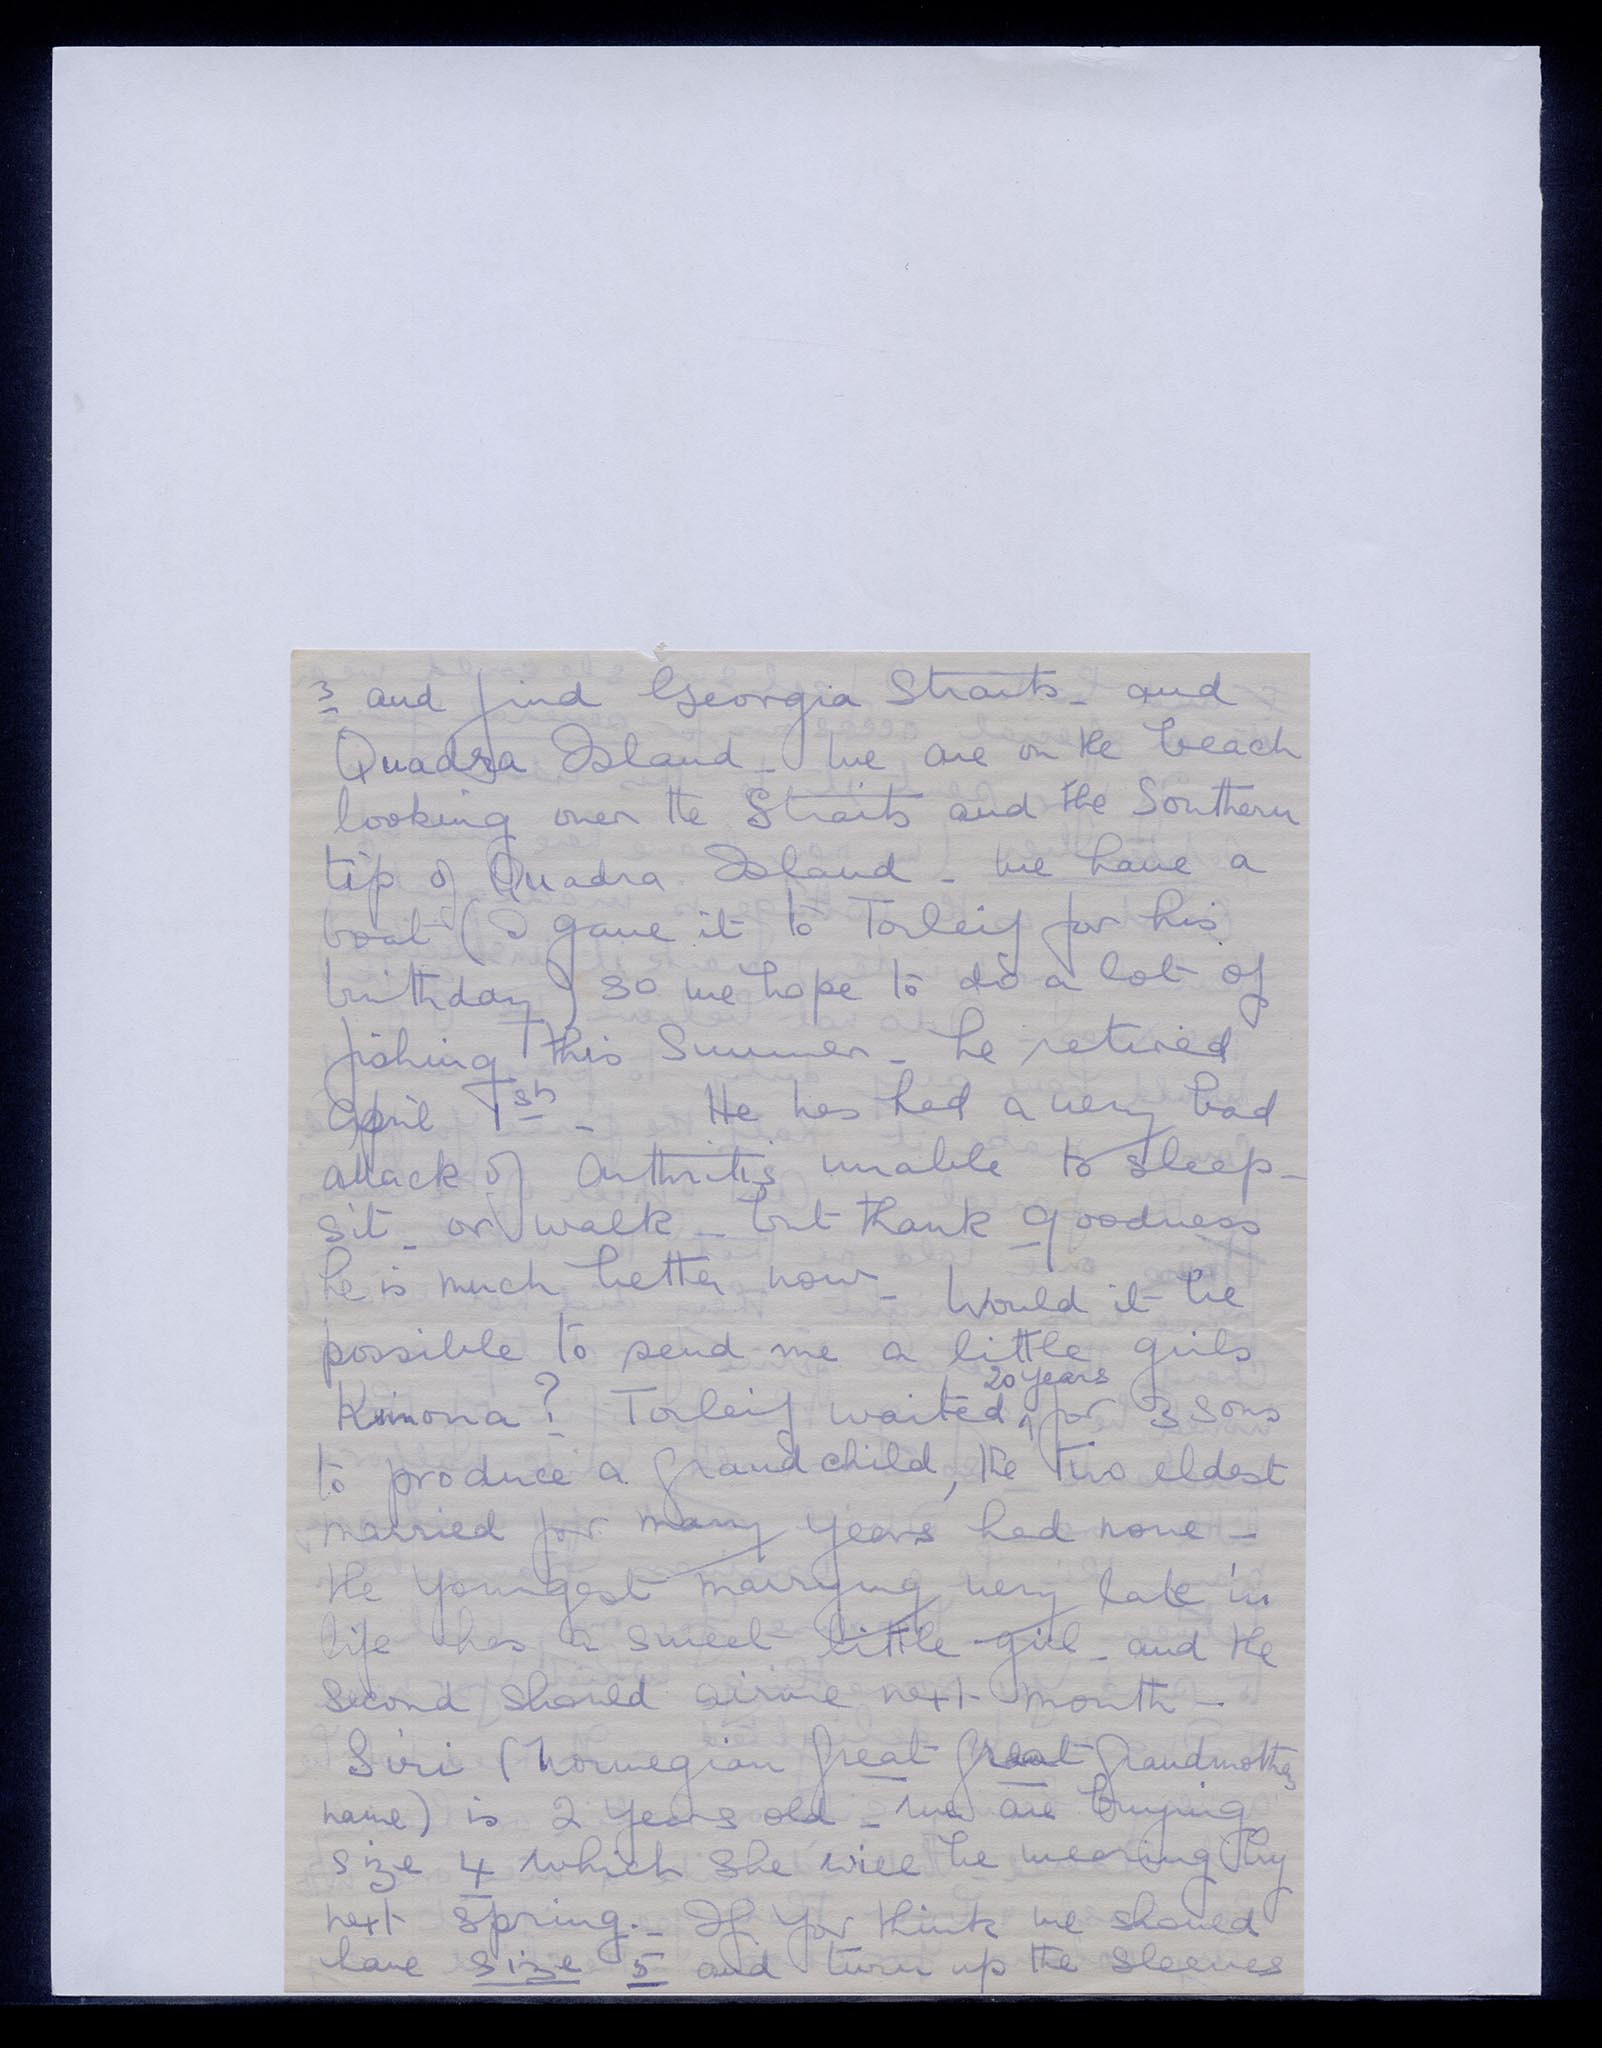 3 and find Georgia Straits - and
Quadra Island - we are on the beach
looking over the Straits and the Southern
tip of Quadra Island - we have a
boat (I gave it to Torleif for his
birthday) so we hope to do a lot of
fishing this Summer - he retired
April 1st - He has had a very bad
attack of Arthritis unable to sleep -
sit - or walk - but thank goodness
he is much better now - Would it be
possible to send me a little girls
Kimona? Torleif waited 20 years for 3 sons
to produce a grandchild, the two eldest
married for many years had none -
the youngest marrying very late in
life has a sweet little girl - and the
second should arrive next month -
Siri (Norwegian great great grandmothers
name) is 2 years old - we are buying
size 4 which she will be wearing by
next spring. - If you think we should
have size 5 and turn up the sleeves